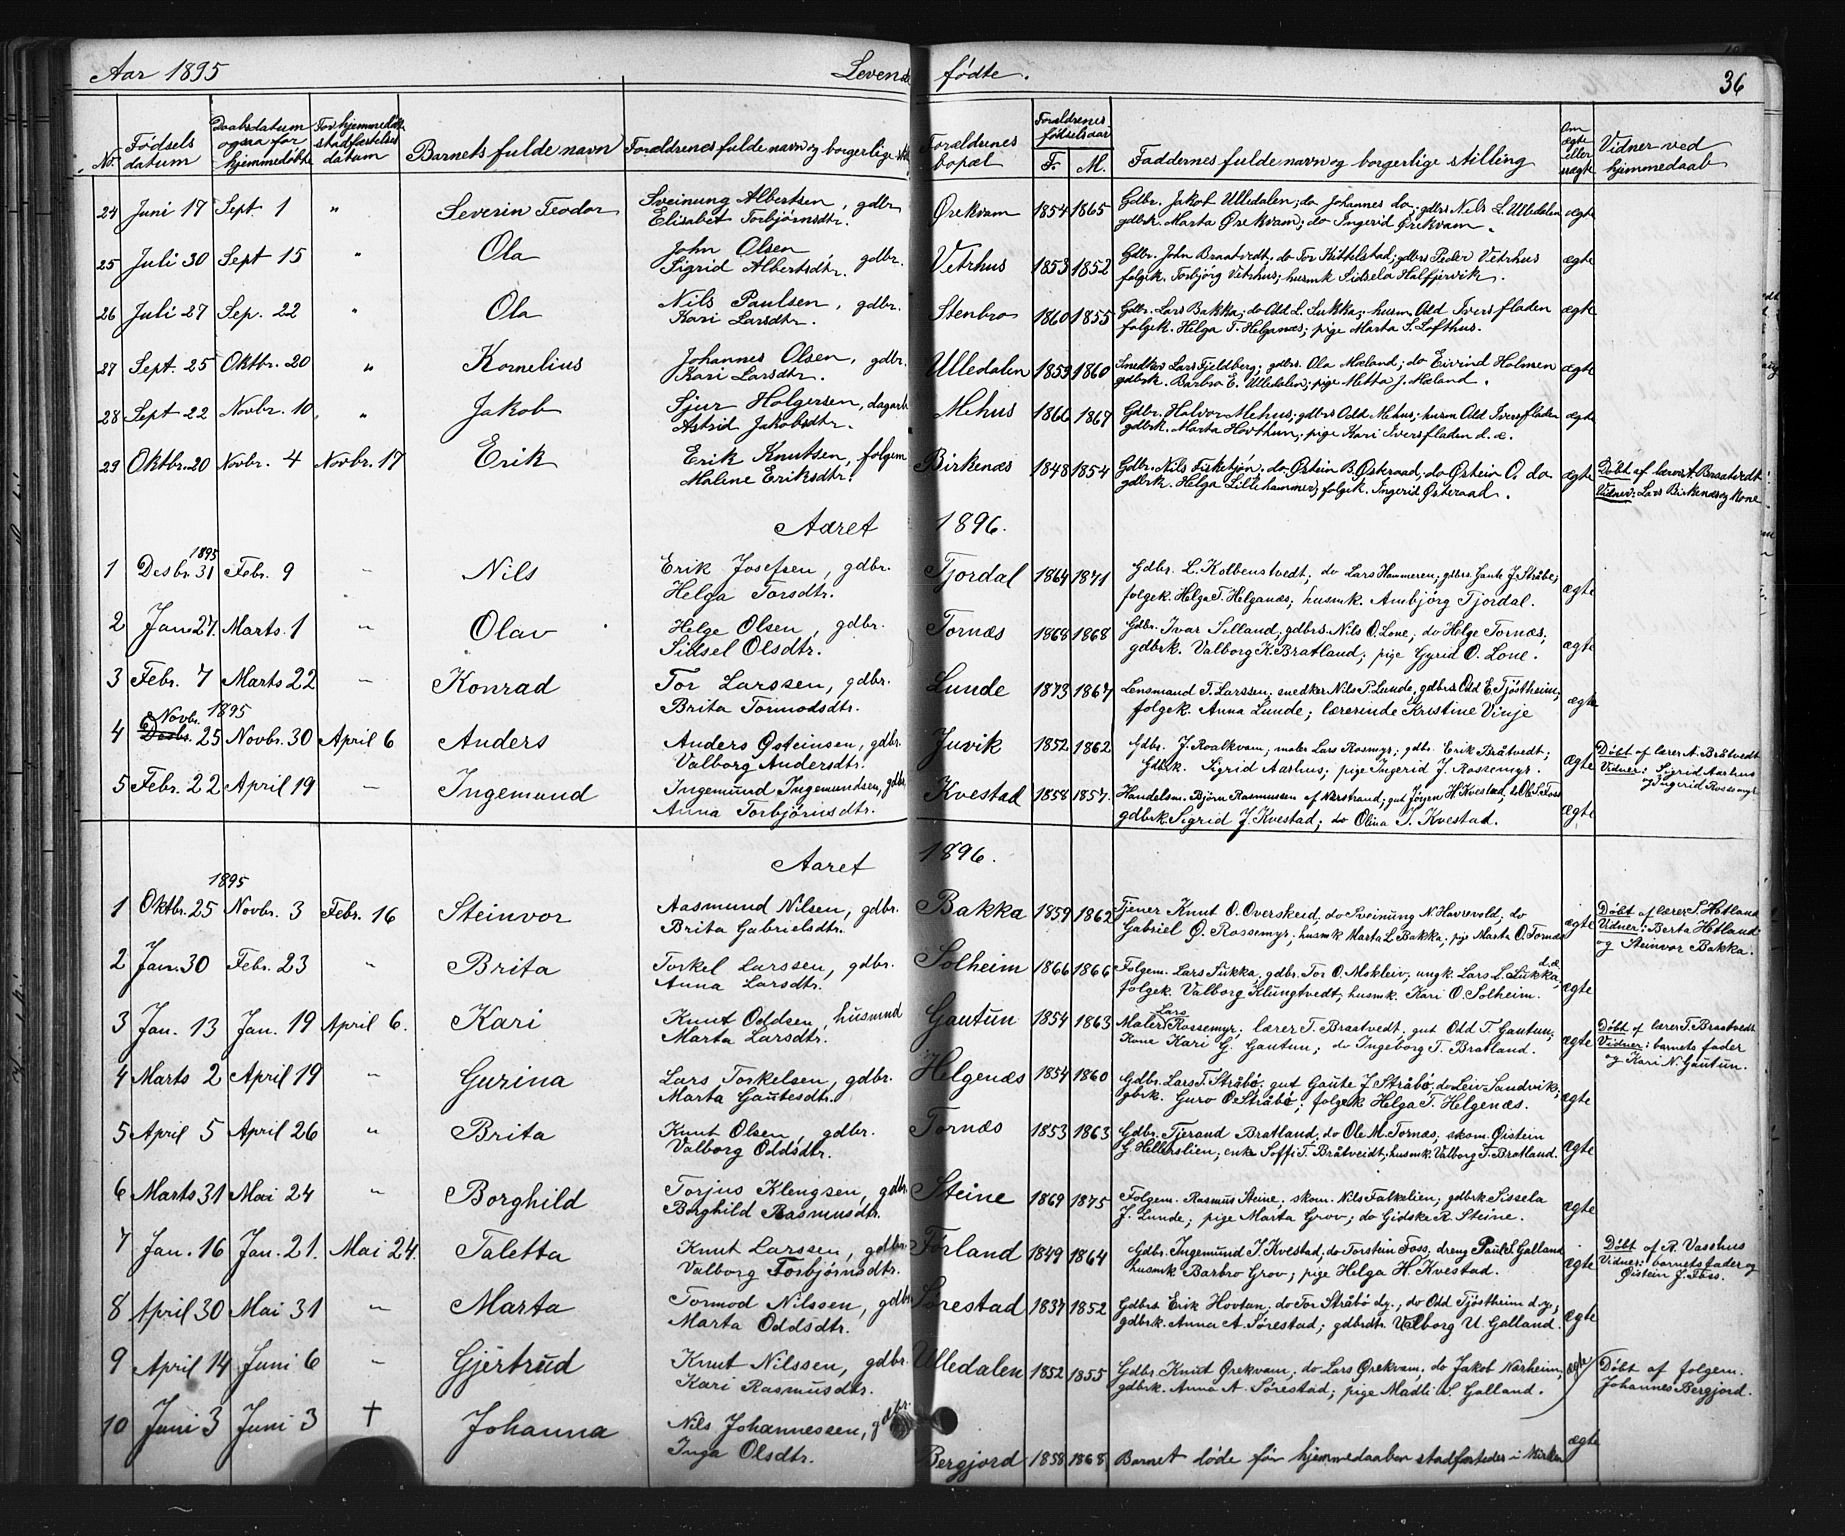 Aar 1895 Levende fødte. 36
No. Fødsels datum Daabsdatum ogsaa for hjemmedøbte For hjemmedøbte stadfæstelses datum Barnets fulde navn Forældrenes fulde navn og borgerlige Forældrenes bopæl Forældrenes fødselsaar F. M. Faddernes fulde navn og borgerlige stilling Om ægte eller uægte Vidner ved hjemmedaab
24 Juni 17 Sept 1 " Severin Teodor Sveinung Albertsen, gdbr Ørekvam 1854 1865 Gdbr. Jakob Ulledalen; do Johannes do; gdbrs Nils L. Ulledalen ægte
Elisabet Torbjørnsdtr. gdbrk. Marta Ørekvam; do Ingerid Ørekvam.
25 Juli 30 Sept 15 " Ola John Olsen, gdbr. Vetrhus 1853 1852 Gdbr. John Braatvedt, do Tor Kittilstad; gdbrs Peder Vetrhus ægte
Sigrid Albertsdtr. folgk. Torbjørg Vetrhus; husmk Sidsela Halfjervik.
26 Juli 27 Sep. 22 " Ola Nils Paulsen, gdbr. Stenbro 1860 1855 Gdbr. Lars Bakka; do Odd L. Sukka; husm Odd Iversfladen ægte
Kari Larsdtr. folgk. Helga T. Helganæs; pige Marta S. Lofthus.
27 Sept. 25 Oktbr. 20 " Kornelius Johannes Olsen, gdbr. Ulledalen 1853 1860 Smedker Lars Fjeldberg; gdbrs. Ola Mæland; do Eivind Holmen ægte
Kari Larsdtr. gdbrk. Barbro E. Ulledalen; pige Metta J. Mæland.
28 Sept 22 Novbr. 10 " Jakob Sjur Holgersen, dagarb Mehus 1866 1867 Gdbr. Halvor Mehus; gdbrs Odd Mehus; husm Odd Iversfladen ægte
Astrid Jakobsdtr. gdbrk. Marta Hovthun; pige Kari Iversfladen d.æ.
29 Oktbr. 20 Novbr. 4 Novbr. 17 Erik Erik Knutsen, folgem Birkenæs 1848 1854 Gdbr. Nils Fisketjøn; do Østein B. Østeraad; do Østein O. do ægte Døbt af lærer A. Braatvedt
Maline Eriksdtr. gdbrk. Helga Lillehammer; folgk. Ingerid Østeraad. Vidner: Lars Birkenæs og kone
Aaret 1896.
1 1895 Desbr. 31 Febr. 9 " Nils Erik Josefsen, gdbr. Tjordal 1864 1871 Gdbr. L. Kolbenstvedt; do Lars Hammeren; gdbrs Gaute J. Stråbø; ægte
Helga Torsdtr. folgek. Helga T. Helganæs; husmk. Ambjørg Tjordal.
2 Jan. 27. Marts. 1 " Olav Helge Olsen, gdbr. Tornæs 1868 1868 Gdbr. Ivar Selland; gdbrs. Nils O. Lone; do Helge Tornæs; ægte
Sidsel Olsdtr. gdbrk. Valborg K. Bratland; pige Gyrid O. Lone.
3 Febr. 7 Marts 22 " Konrad Tor Larssen, gdbr. Lunde 1873 1867 Lensmand T. Larssen; snedker Nils P. Lunde; gdbrs Odd E. Tjøstheim; ægte
Brita Tormodsdtr. folgek. Anna Lunde; lærerinde Kristine Vinje
4 Novbr. 1895 Desbr. 25 Novbr. 30 April 6 Anders Anders Østeinsen, gdbr. Juvik 1852 1862 Gdbr. J. Roalkvam; maler Lars Rosmyr; gdbr. Erik Bråtvedt; ægte Døbt af lærer A. Bråtvedt
Valborg Andersdtr. Gdbrk. Sigrid Aarhus; pige Ingerid J. Rossemyr. Vidner: Sigrid Aarhus
og Ingerid Rossemyr
5 Febr. 22 April 19 " Ingemund Ingemund Ingemundsen, gdbr. Kvestad 1858 1857. Handelsm. Bjørn Rasmussen af Nærstrand; gut Jøren H Kvestad; do Ole S. Foss ægte
Anna Torbjørnsdtr. gdbrk Sigrid J. Kvestad; do Olina T. Kvestad.
Aaret 1896.
1 1895 Oktbr. 25 Novbr. 3 Febr. 16 Steinvor Aasmund Nilsen, gdbr. Bakka 1859 1862 Tjener Knut O. Overskeid, do Sveinung N Havrevold; do ægte Døbt af lærer S. Hetland
Brita Gabrielsdtr. Gabriel O. Rossemyr; husmk Marta L. Bakka; pige Marta O. Tornæs Vidner: Berta Hetland
og Steinvor Bakka.
2 Jan. 30 Febr. 23 " Brita Torkel Larssen, gdbr. Solheim 1866 1866 Folgem. Lars Sukka, gdbr. Tor O. Mokleiv; ungk. Lars L. Sukka d.æ. ægte
Anna Larsdtr. folgek. Valborg Klungtvedt; husmk. Kari O. Solheim.
3 Jan. 13 Jan. 19 April 6. Kari Knut Oddsen, husmnd Gautun 1854 1863 Maler Lars Rossemyr; lærer T. Braatvedt; gut Odd T. Gautun; ægte Døbt af lærer T. Braatvedt
Marta Larsdtr. Kone Kari G. Gautun; do Ingeborg T. Bratland. Vidner: barnets fader
og Kari N. Gautun.
4 Marts 2 April 19 " Gurina Lars Torkelsen, gdbr. Helgenæs 1854 1860 Gdbr. Lars T. Stråbø; gut Gaute J Stråbø; do Leiv Sandvik; ægte
Marta Gautesdtr. gbrk. Guro O. Stråbø; folgek Helga T. Helgenæs.
5 April 5 April 26 " Brita Knut Olsen, gdbr. Tornæs 1853 1863 Gdbr. Tjerand Bratland; do Ole M. Tornæs; skom. Øistein ægte
Valborg Oddsdtr. G. Hellerslien; enke Soffi T. Bråtveidt; husmk. Valborg T. Bratland.
6 Marts 31 Mai 24 " Borghild Torjus Klengsen, gdbr. Steine 1869 1875 Folgem. Rasmus Steine; skom. Nils Falkelien; gdbrk Sissela ægte
Borghild Rasmusdtr. J. Lunde; pige Marta Grov; do Gidske R. Steine.
7 Jan. 16 Jan. 21. Mai 24. Taletta Knut Larssen, gdbr Førland 1849 1864 Gdbr. Ingemund I. Kvestad; do Torstein Foss; dreng Paul S. Galland ægte Døbt af R. Vasshus
Valborg Torbjørnsdtr. husmk Barbro Grov; pige Helga H. Kvestad. Vidner: barnets fader og
Øistein J. Foss.
8 April 30 Mai 31 " Marta Tormod Nilssen, gdbr Sørestad 1837 1852 Gdbrs. Erik Hovtun; do Tor Stråbø d.y.; do Odd Tjøstheim d.y.; ægte
Marta Oddsdtr. gdbrk. Anna A. Sørestad; gdbrdtr. Valborg U. Galland.
9 April 14 Juni 6 " Gjertrud Knut Nilssen, gdbr. Ulledalen 1852 1855 Gdbr. Knut Ørekvam; do Lars Ørekvam; do Jakob Nærheim; ægte Døbt af folgem.
Kari Rasmusdtr. gdbrk. Anna A. Sørestad; pige Madli S. Galland. Johannes Bergjord.
10 Juni 3 Juni 3 † Johanna Nils Johannessen, gdbr.
Inga Olsdtr. Bergjord 1858 1868 Barnet døde før hjemmedaaben stadfæstedes i Kirken ægte